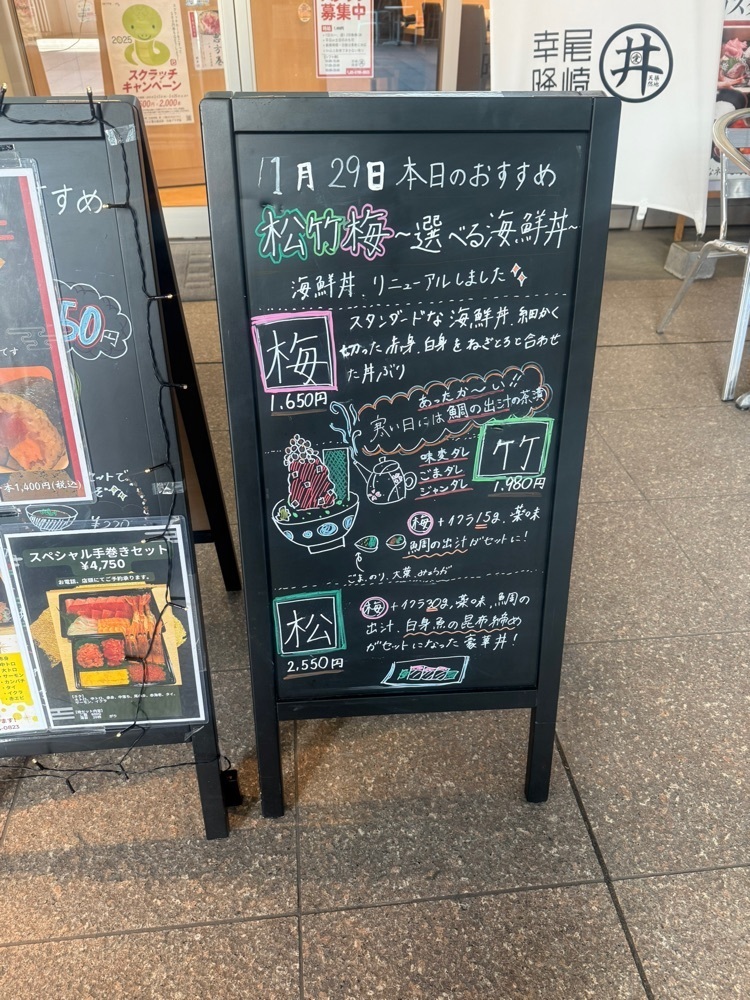 1月29日本日のおすすめ
松竹梅~選べる海鮮丼~
海鮮丼、リニューアルしました
梅
1.650円
スタンダードな海鮮丼、細かく
切った赤身、白身をねぎとろと合わせ
た丼ぶり
あったか〜い!!
寒い日には鯛の出汁の茶漬
竹
1.980円
味変タレ
ごまタレ
ジャンタレ
梅+イクラ15g、薬味
鯛の出汁がセットに!
ごま、のり、大葉、みょうが
松
2,550円
梅+イクラ30g、薬味、鯛の
出汁、白身魚の昆布締め
がセットになった豪華丼!
すすめ
50円
です
1,400円(税込)
セットで
¥330
スペシャル手巻きセット
¥4,750
お電話、店頭にてご予約承ります。
中トロ
サーモン
カンパチ
タイ
イクラ
-0823
2025
スクラッチ
キャンペーン
2,000円
募集中
尾崎
幸隆
丼